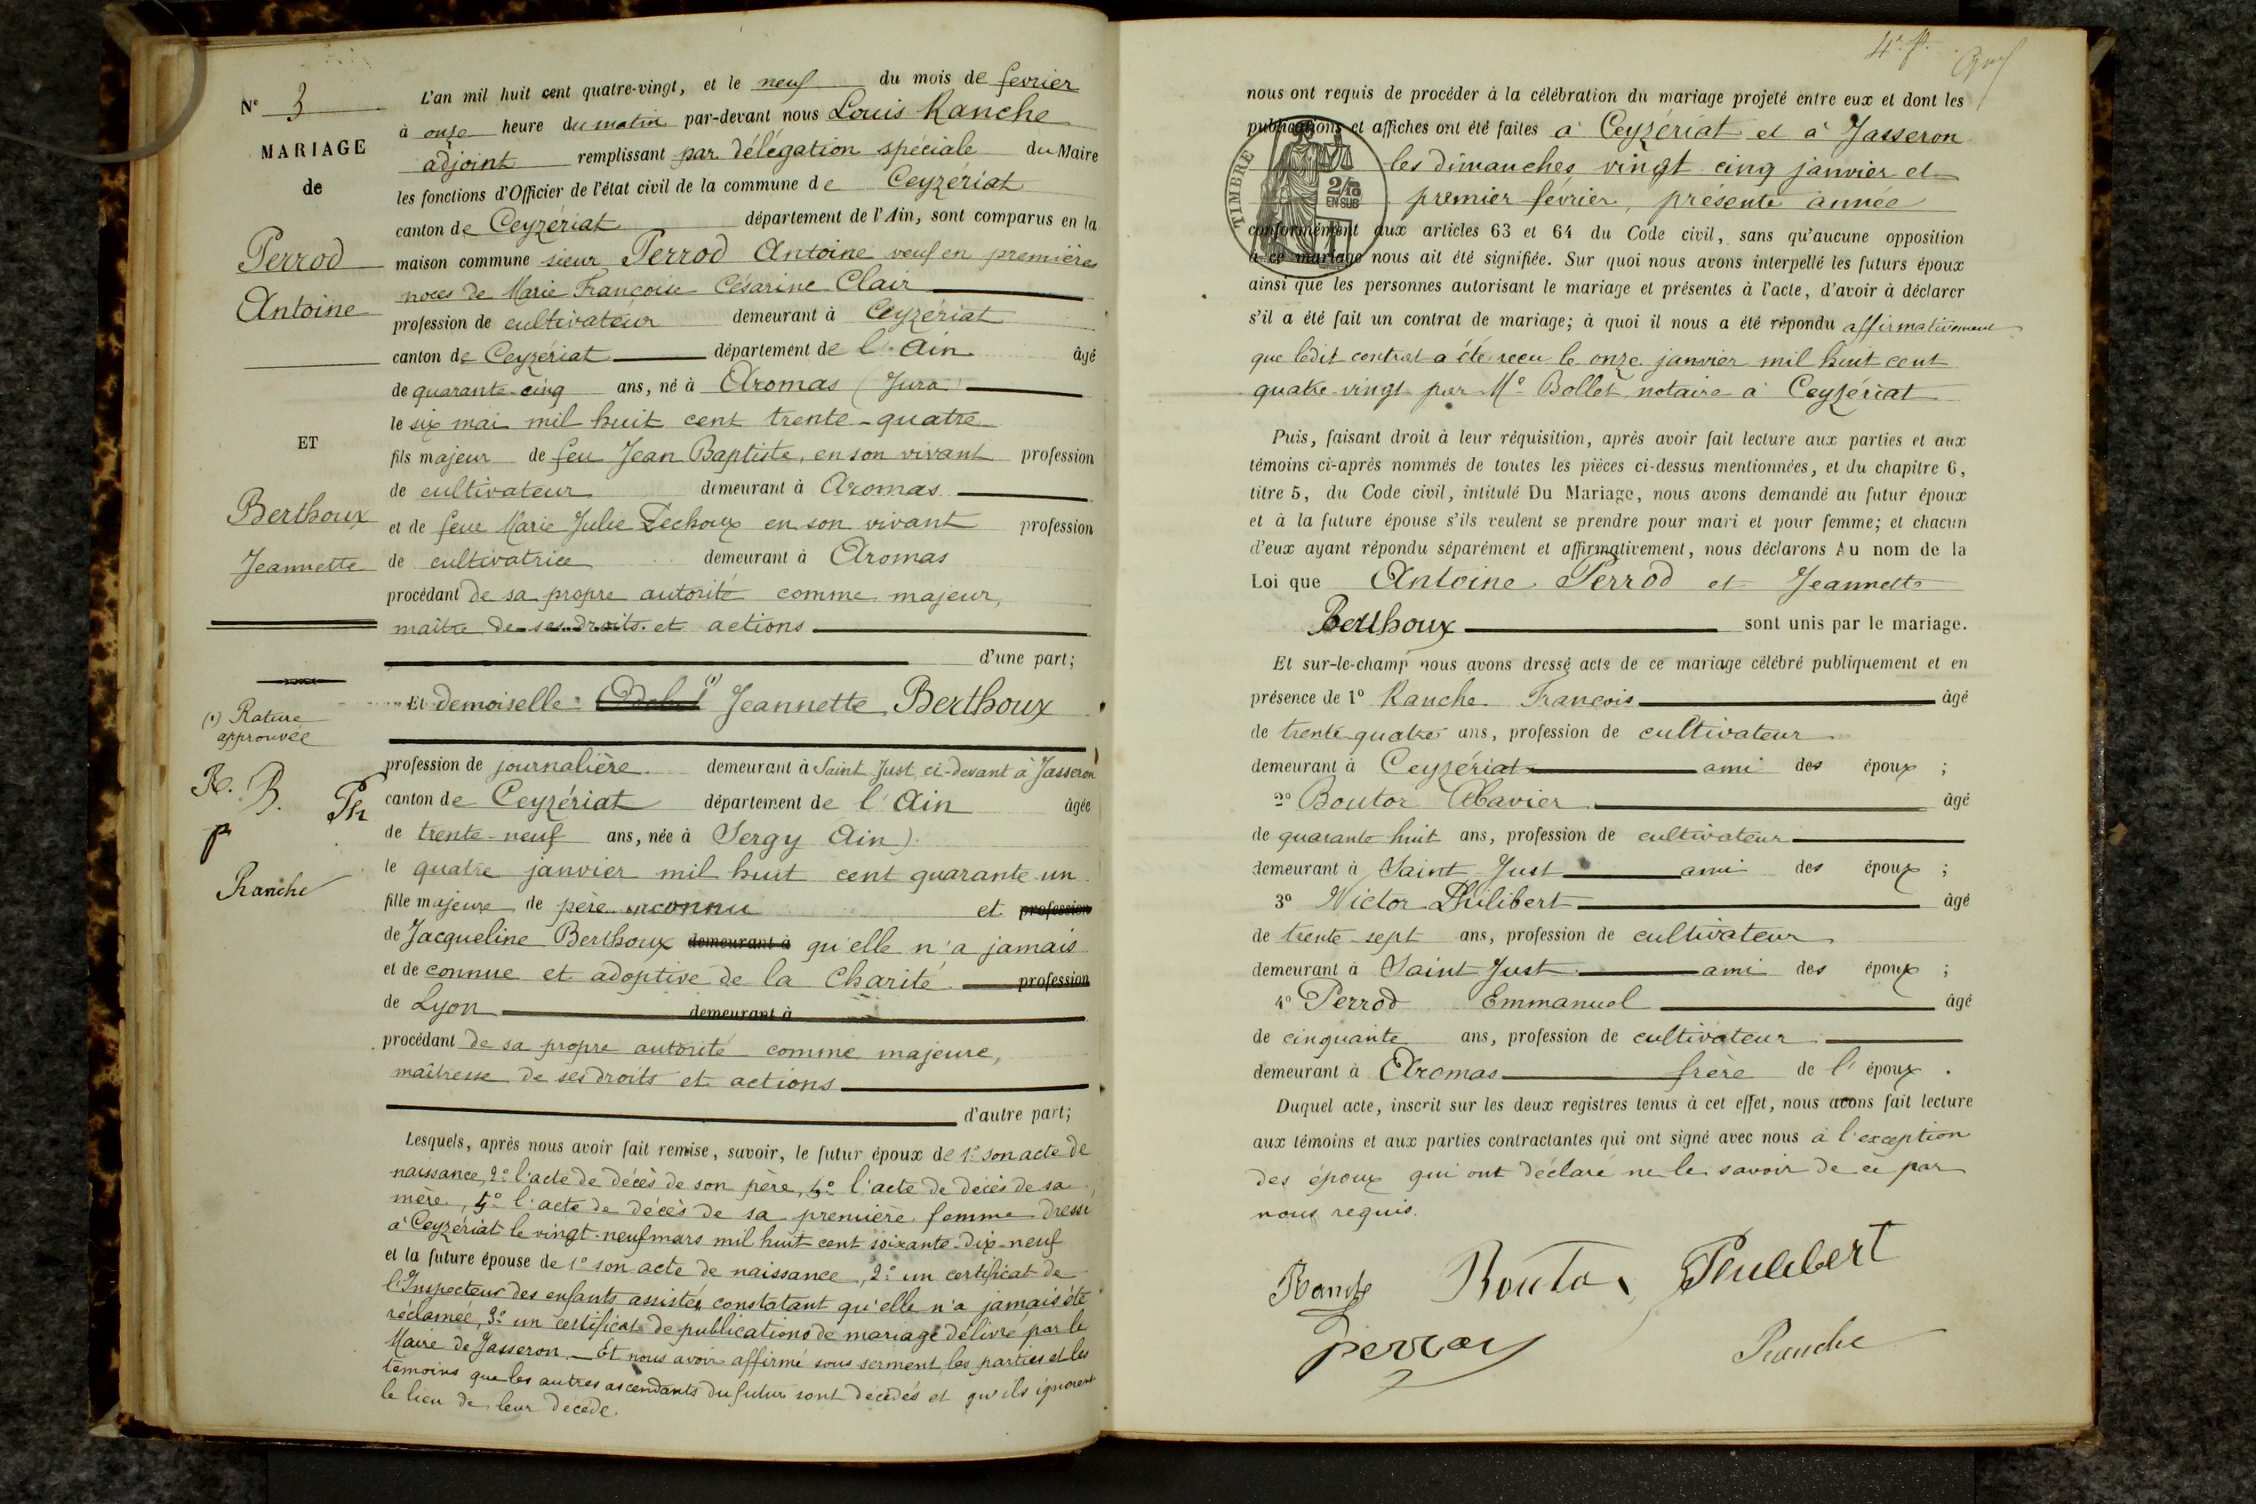 N° 3
MARIAGE
de
Perrod
Antoine
ET
Berthoux
Jeannette
(1) Rature
approuvée
R. B. Ph
P
Ranche
L'an mil huit cent quatre-vingt, et le neuf du mois de fevrier
à onze heure du matin par-devant nous Louis Ranche
adjoint remplissant par délégation spéciale du Maire
les fonctions d'Officier de l'état civil de la commune de Ceyzériat
canton de Ceyzériat département de l'Ain, sont comparus en la
maison commune sieur Perrod Antoine veuf en premières
noces de Marie Françoise Césarine Clair
profession de cultivateur demeurant à Ceyzériat
canton de Ceyzériat département de l'Ain âgé
de quarante-cinq ans, né à Aromas (Jura)
le six mai mil huit cent trente-quatre
fils majeur de feu Jean Baptiste, en son vivant profession
de cultivateur demeurant à Aromas
et de feue Marie Julie Dechoux en son vivant profession
de cultivatrice demeurant à Aromas
procédant de sa propre autorité comme majeur,
maître de ses droits et actions
d'une part;
Et demoiselle (1) Jeannette Berthoux
profession de journalière demeurant à Saint Just, ci-devant à Jasseron
canton de Ceyzériat département de l'Ain âgée
de trente-neuf ans, née à Sergy Ain)
le quatre janvier mil huit cent quarante un
fille majeure de père inconnu et profession
de Jacqueline Berthoux demeurant à qu'elle n'a jamais
et de connue et adoptive de la Charité profession
de Lyon demeurant à
procédant de sa propre autorité comme majeure,
maîtresse de ses droits et actions
d'autre part;
Lesquels, après nous avoir fait remise, savoir, le futur époux de 1° son acte de
naissance, 2° l'acte de décès de son père, 3° l'acte de décès de sa
mère, 4° l'acte de décès de sa première femme dressé
à Ceyzériat le vingt-neuf mars mil huit cent soixante-dix-neuf
et la future épouse de 1° son acte de naissance, 2° un certificat de
l'Inspecteur des enfants assistés constatant qu'elle n'a jamais été
réclamée, 3° un certificat de publications de mariage délivré par le
Maire de Jasseron. — Et nous avoir affirmé sous serment, les parties et les
témoins que les autres ascendants du futur sont décédés et qu'ils ignorent
le lieu de leur décéde.
4e f.
nous ont requis de procéder à la célébration du mariage projeté entre eux et dont les
publications et affiches ont été faites à Ceyzériat et à Jasseron
les dimanches vingt cinq janvier et
premier février, présente année
TIMBRE
2/10
EN SUS
conformément aux articles 63 et 64 du Code civil, sans qu'aucune opposition
à ce mariage nous ait été signifiée. Sur quoi nous avons interpellé les futurs époux
ainsi que les personnes autorisant le mariage et présentes à l'acte, d'avoir à déclarer
s'il a été fait un contrat de mariage; à quoi il nous a été répondu affirmativement
que ledit contrat a été reçu le onze janvier mil huit cent
quatre-vingt par Me Bollet notaire à Ceyzériat
Puis, faisant droit à leur réquisition, après avoir fait lecture aux parties et aux
témoins ci-après nommés de toutes les pièces ci-dessus mentionnées, et du chapitre 6,
titre 5, du Code civil, intitulé Du Mariage, nous avons demandé au futur époux
et à la future épouse s'ils veulent se prendre pour mari et pour femme; et chacun
d'eux ayant répondu séparément et affirmativement, nous déclarons Au nom de la
Loi que Antoine Perrod et Jeannette
Berthoux sont unis par le mariage.
Et sur-le-champ nous avons dressé acte de ce mariage célébré publiquement et en
présence de 1° Ranche François âgé
de trente-quatre ans, profession de cultivateur
demeurant à Ceyzériat ami des époux ;
2° Boutor Xavier âgé
de quarante huit ans, profession de cultivateur
demeurant à Saint Just ami des époux ;
3° Victor Philibert âgé
de trente-sept ans, profession de cultivateur
demeurant à Saint Just ami des époux ;
4° Perrod Emmanuel âgé
de cinquante ans, profession de cultivateur
demeurant à Aromas frère de l'époux .
Duquel acte, inscrit sur les deux registres tenus à cet effet, nous avons fait lecture
aux témoins et aux parties contractantes qui ont signé avec nous à l'exception
des époux qui ont déclaré ne le savoir de ce par
nous requis.
Ranche Boutor Philibert
perrod Ranche